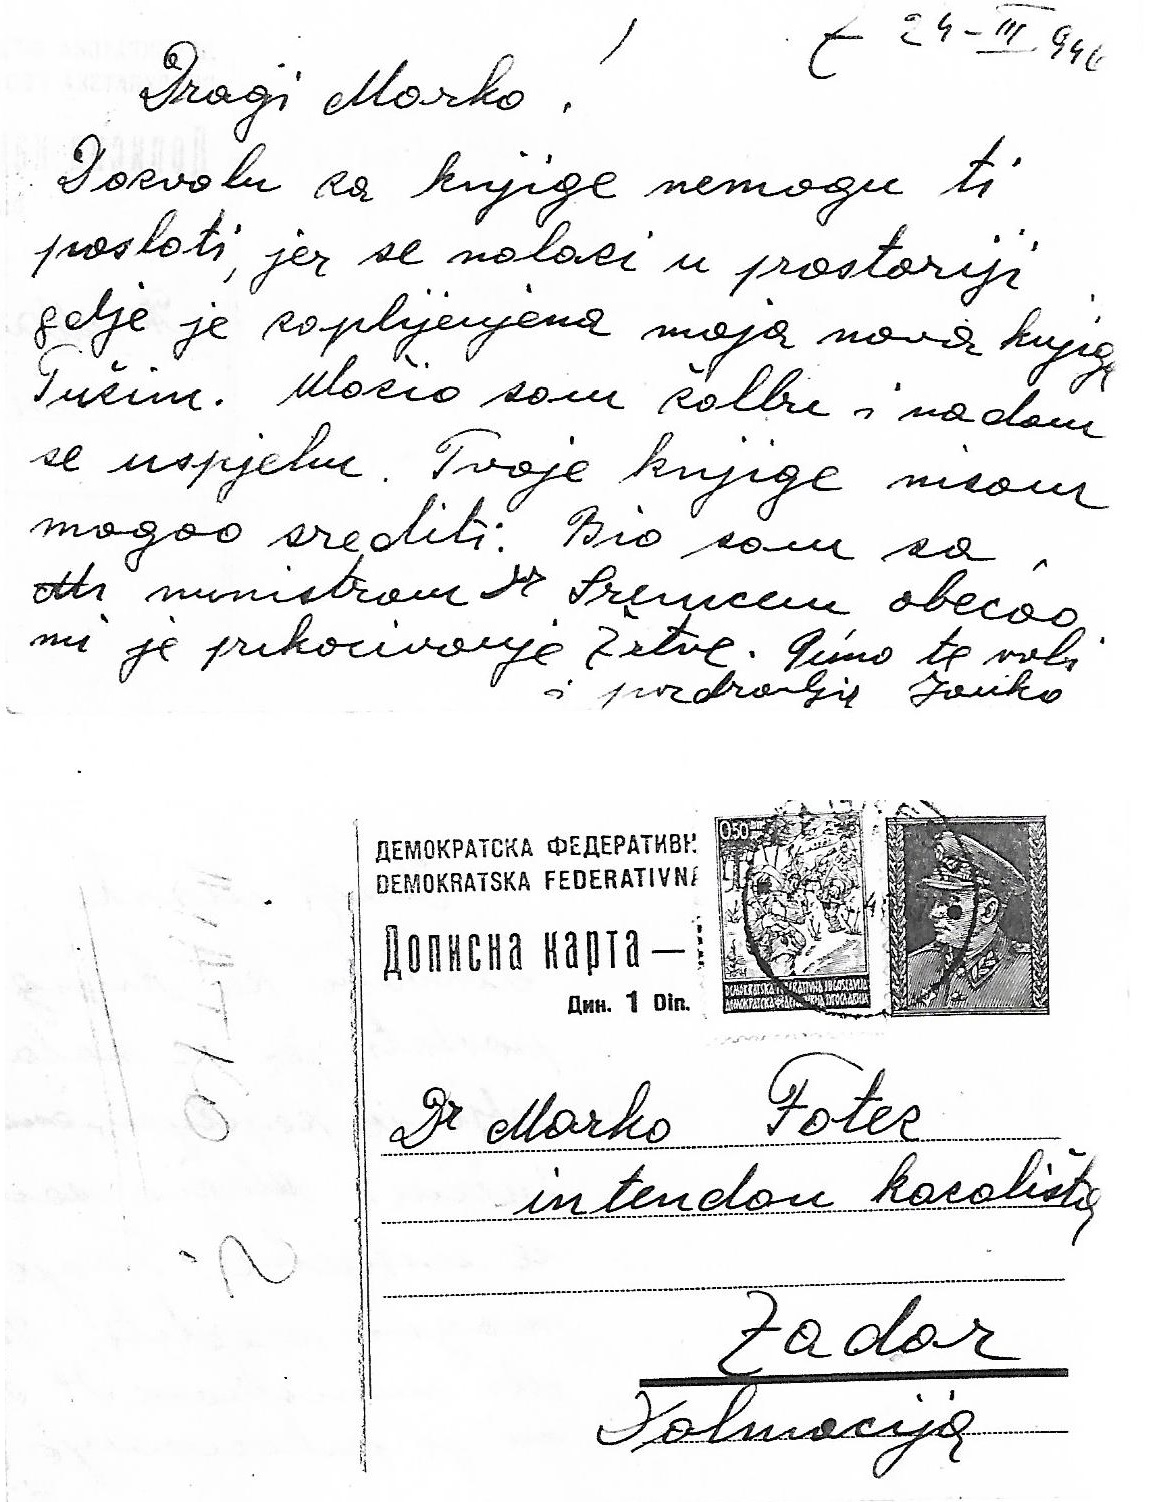 Z 24-III 946
Dragi Marko!
Dozvolu za knjige nemogu ti
poslati, jer se nalazi u prostoriji
gdje je zaplijenjena moja nova knjiga
Tuđim. Uložio sam žalbu i nadam
se uspjehu. Tvoje knjige nisam
mogao srediti. Bio sam sa
ministrom dr Sremcem obećao
mi je prikazivanje Žrtve. Puno te voli
i pozdravlja Janko
ДЕМОКРАТСКА ФЕДЕРАТИВН
DEMOKRATSKA FEDERATIVNA
Дописна карта —
Дин. 1 Din.
0.50
DEMOKRATSKA FEDERATIVNA JUGOSLAVIJA
ДЕМОКРАТСКА ФЕДЕРАТИВНА ЈУГОСЛАВИЈА
Dr Marko Fotez
intendan kazališta
Zadar
Dalmacija